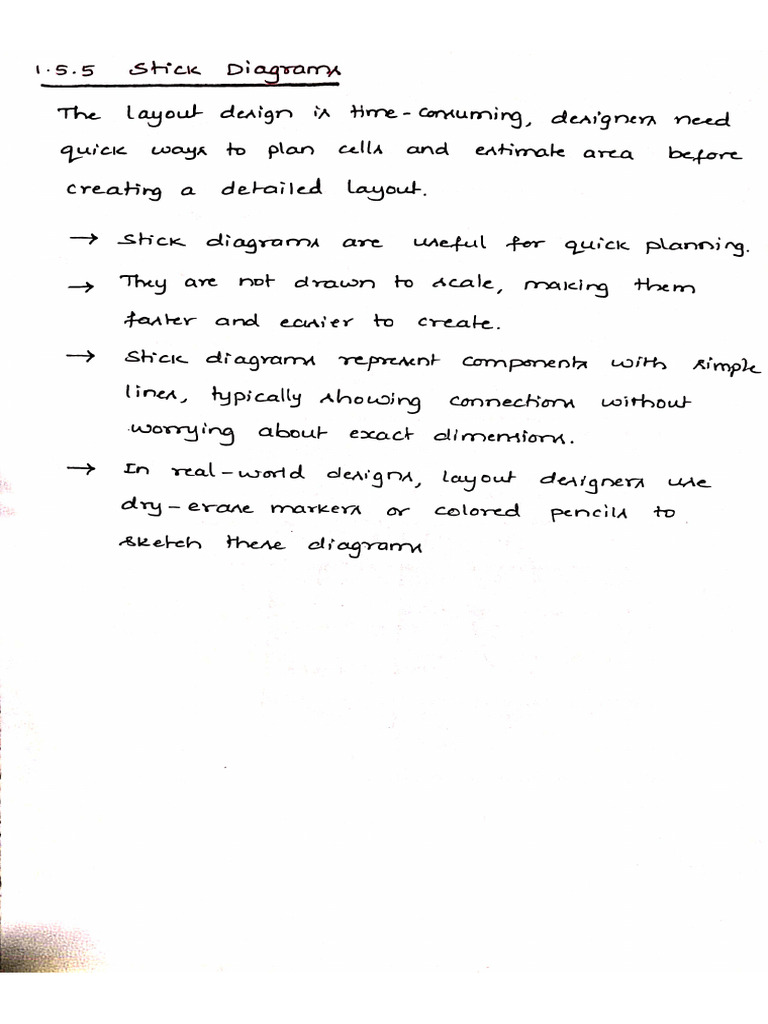 1.5.5 Stick Diagrams
The layout design is time-consuming, designers need
quick ways to plan cells and estimate area before
creating a detailed layout.
→ Stick diagrams are useful for quick planning.
→ They are not drawn to scale, making them
faster and easier to create.
→ Stick diagrams represent components with simple
lines, typically showing connections without
worrying about exact dimensions.
→ In real-world designs, layout designers use
dry-erase markers or colored pencils to
sketch these diagrams